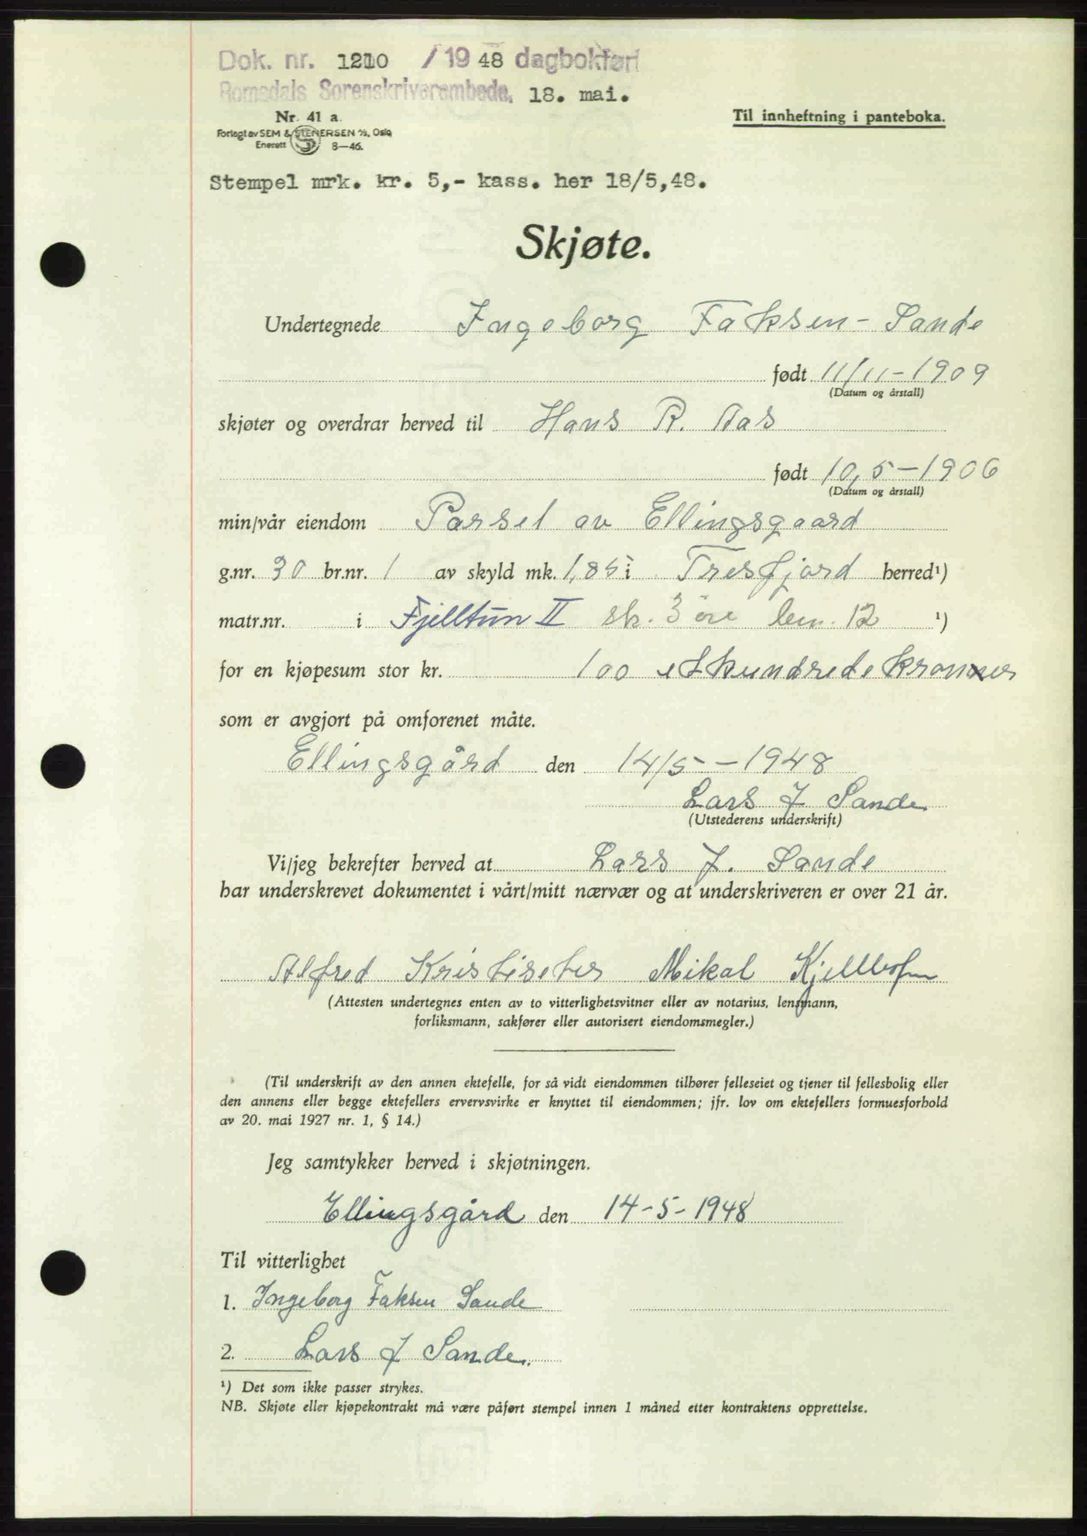 Dok. nr. 1210 / 1948 dagbokført
Romsdals Sorenskriverembede, 18. mai.
Nr. 41 a.
Til innheftning i panteboka.
Forlagt av SEM & STENERSEN A/S, Oslo
Enerett 8—46.
Stempel mrk. kr. 5,- kass. her 18/5,48.
Skjøte.
Undertegnede Ingeborg Faksen - Sande
født 11/11 - 1909
(Datum og årstall)
skjøter og overdrar herved til Hans R. Aas
født 10,5 - 1906
(Datum og årstall)
min/vår eiendom Parsel av Ellingsgaard
g.nr. 30 br.nr. 1 av skyld mk. 1,85 i Tresfjord herred¹)
matr.nr. i Fjelltun II sk. 3 øre bnr. 12 ¹)
for en kjøpesum stor kr. 100 ethundrede kroner
som er avgjort på omforenet måte.
Ellingsgård den 14/5 - 1948
Lars J Sande
(Utstederens underskrift)
Vi/jeg bekrefter herved at Lars J. Sande
har underskrevet dokumentet i vårt/mitt nærvær og at underskriveren er over 21 år.
Alfred Kristiseter Mikal
(Attesten undertegnes enten av to vitterlighetsvitner eller av notarius, lensmann,
forliksmann, sakfører eller autorisert eiendomsmegler.)
(Til underskrift av den annen ektefelle, for så vidt eiendommen tilhører felleseiet og tjener til fellesbolig eller
den annens eller begge ektefellers ervervsvirke er knyttet til eiendommen; jfr. lov om ektefellers formuesforhold
av 20. mai 1927 nr. 1, § 14.)
Jeg samtykker herved i skjøtningen.
Ellingsgård den 14-5-1948
Til vitterlighet
1. Ingeborg Faksen Sande
2. Lars J Sande.
¹) Det som ikke passer strykes.
NB. Skjøte eller kjøpekontrakt må være påført stempel innen 1 måned etter kontraktens opprettelse.